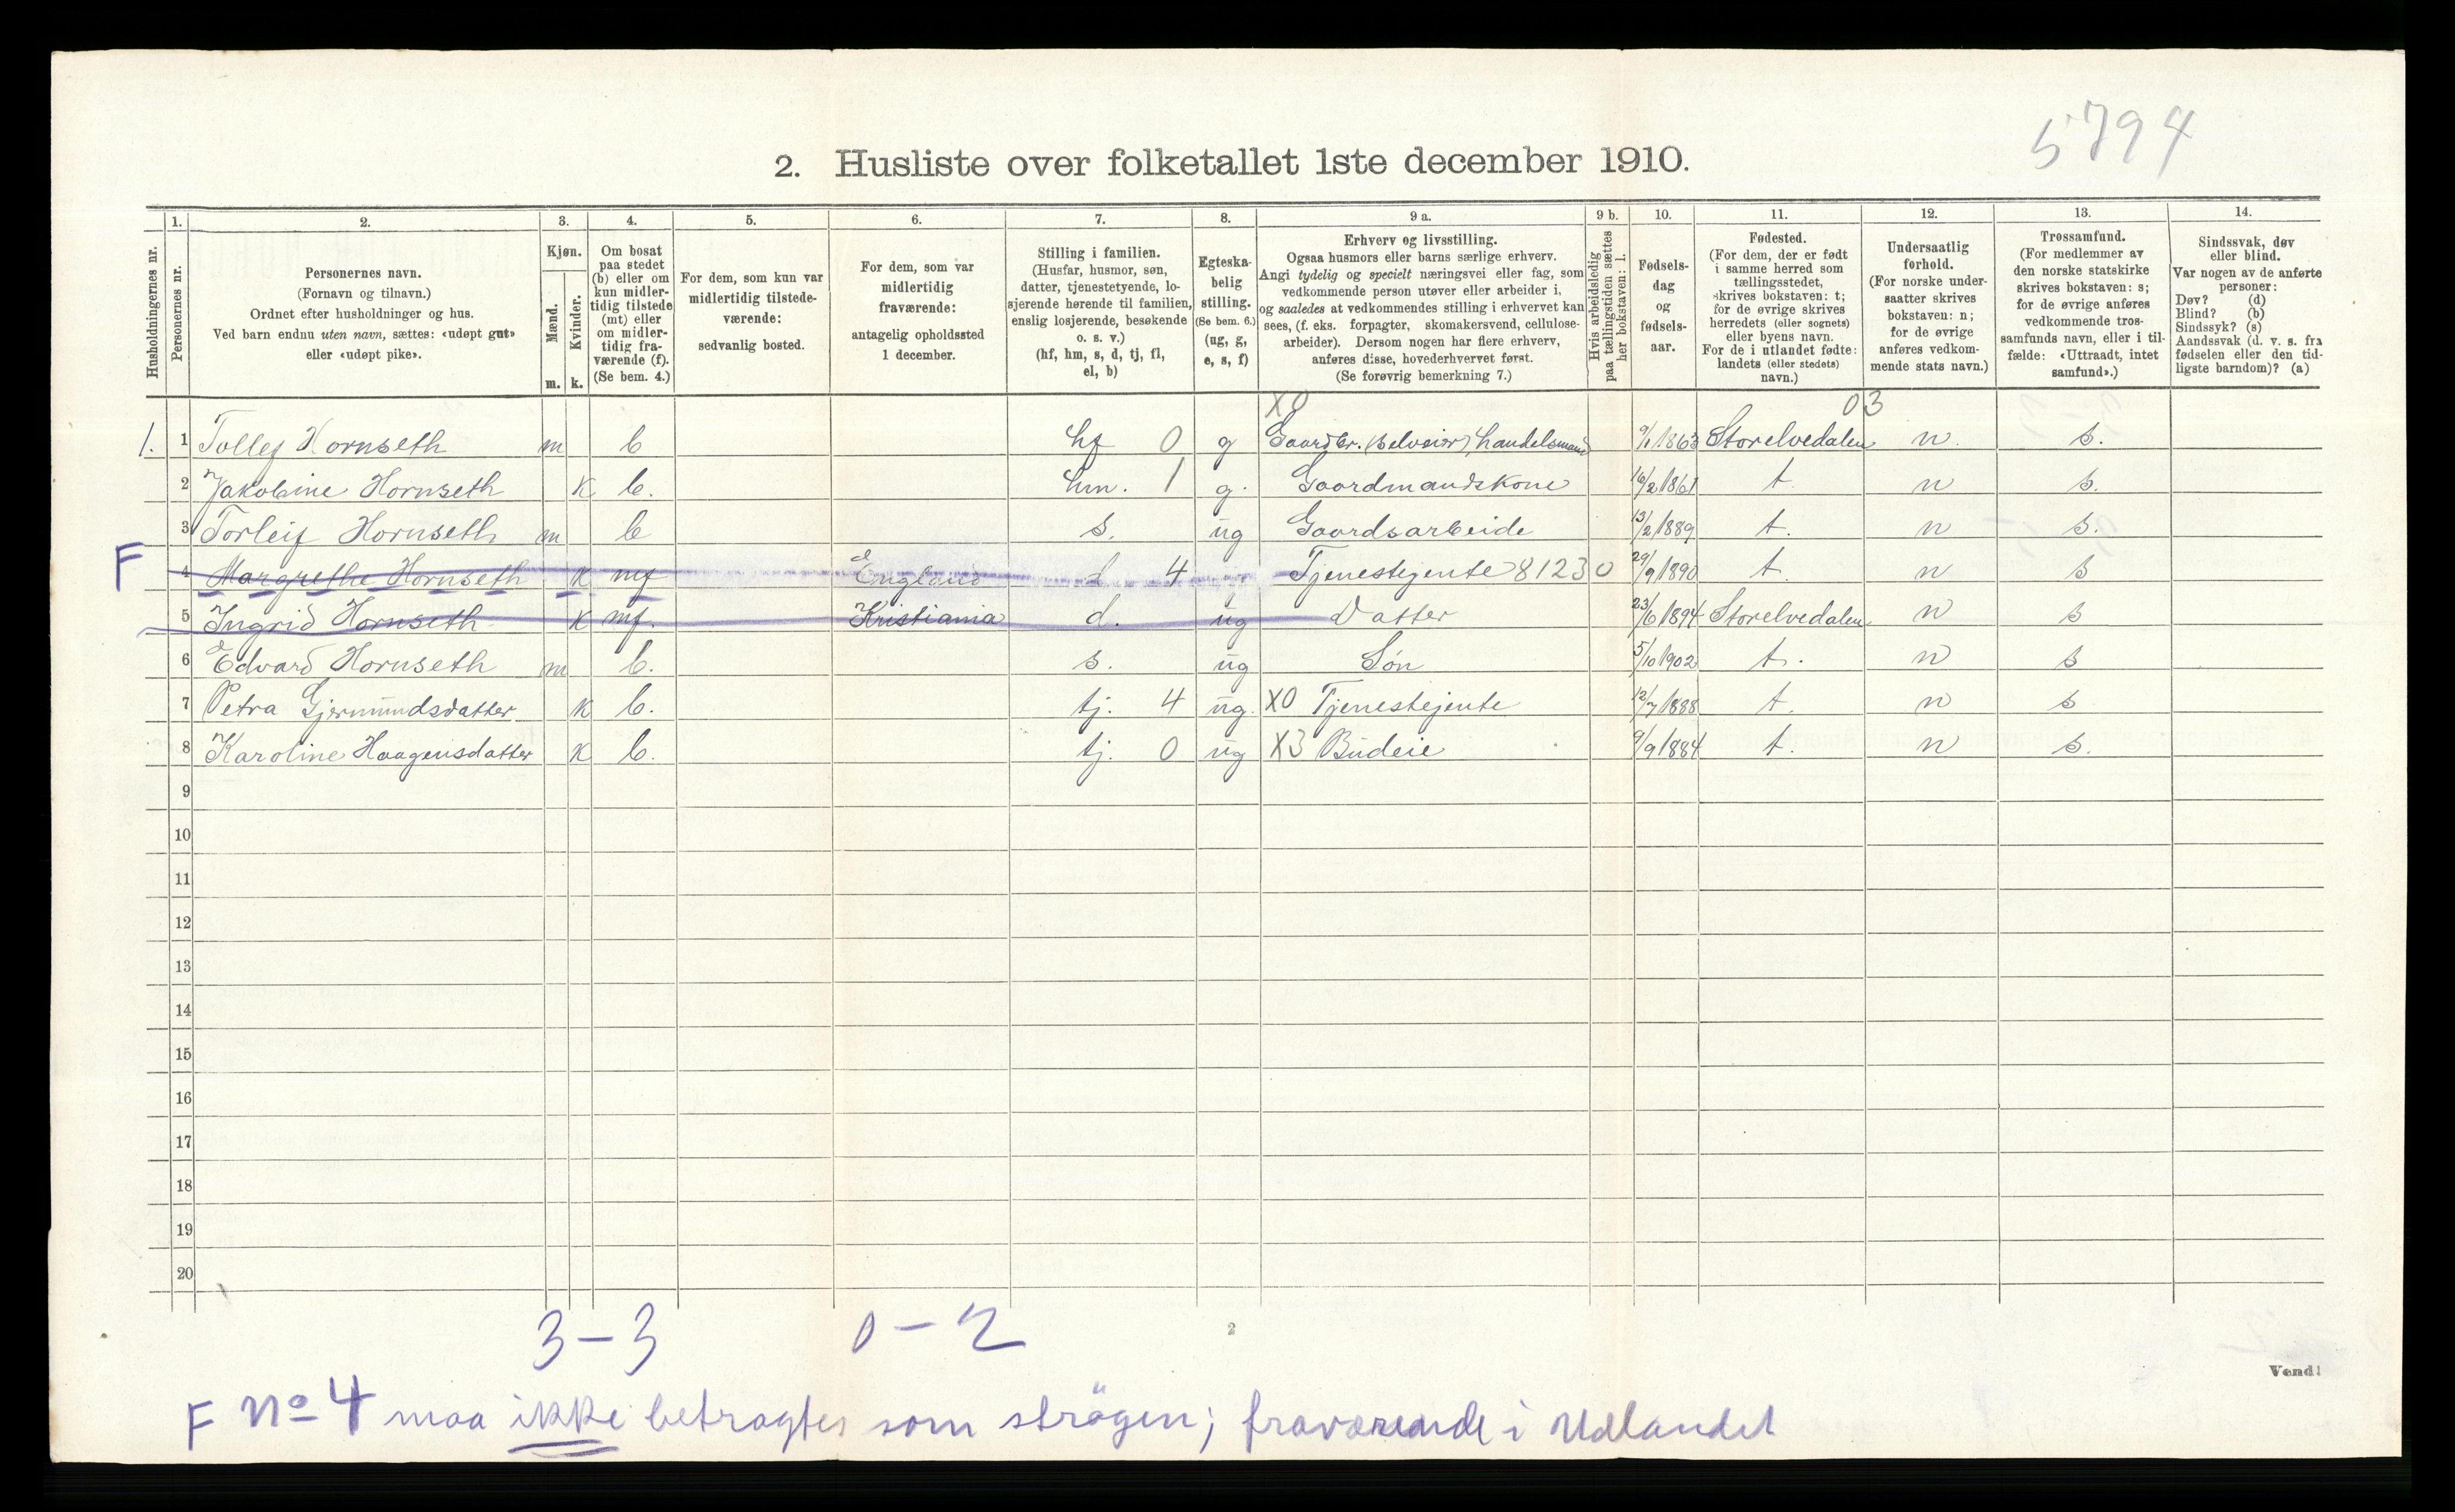 5794
2. Husliste over folketallet 1ste december 1910.
Husholdningernes nr.
1. Personernes nr.
2. Personernes navn.
(Fornavn og tilnavn.)
Ordnet efter husholdninger og hus.
Ved barn endnu uten navn, sættes: «udøpt gut»
eller «udøpt pike».
3. Kjøn.
Mænd. m.
Kvinder. k.
4. Om bosat
paa stedet
(b) eller om
kun midler-
tidig tilstede
(mt) eller
om midler-
tidig fra-
værende (f).
(Se bem. 4.)
5. For dem, som kun var
midlertidig tilstede-
værende:
sedvanlig bosted.
6. For dem, som var
midlertidig
fraværende:
antagelig opholdssted
1 december.
7. Stilling i familien.
(Husfar, husmor, søn,
datter, tjenestetyende, lo-
sjerende hørende til familien,
enslig losjerende, besøkende
o. s. v.)
(hf, hm, s, d, tj, fl,
el, b)
8. Egteska-
belig
stilling.
(Se bem. 6.)
(ug, g,
e, s, f)
9 a. Erhverv og livsstilling.
Ogsaa husmors eller barns særlige erhverv.
Angi tydelig og specielt næringsvei eller fag, som
vedkommende person utøver eller arbeider i,
og saaledes at vedkommendes stilling i erhvervet kan
sees, (f. eks. forpagter, skomakersvend, cellulose-
arbeider). Dersom nogen har flere erhverv,
anføres disse, hovederhvervet først.
(Se forøvrig bemerkning 7.)
9 b. Hvis arbeidsledig
paa tællingstiden sættes
her bokstaven: l.
10. Fødsels-
dag
og
fødsels-
aar.
11. Fødested.
(For dem, der er født
i samme herred som
tællingsstedet,
skrives bokstaven: t;
for de øvrige skrives
herredets (eller sognets)
eller byens navn.
For de i utlandet fødte:
landets (eller stedets)
navn.)
12. Undersaatlig
forhold.
(For norske under-
saatter skrives
bokstaven: n;
for de øvrige
anføres vedkom-
mende stats navn.)
13. Trossamfund.
(For medlemmer av
den norske statskirke
skrives bokstaven: s;
for de øvrige anføres
vedkommende tros-
samfunds navn, eller i til-
fælde: «Uttraadt, intet
samfund».)
14. Sindssvak, døv
eller blind.
Var nogen av de anførte
personer:
Døv? (d)
Blind? (b)
Sindssyk? (s)
Aandssvak (d. v. s. fra
fødselen eller den tid-
ligste barndom)? (a)
X0 03
1. 1 Tollef Hornseth m b hf 0 g Gaardbr. (selveier), handelsmand 9/1 1863 Storelvedalen n. s.
2 Jakobine Hornseth K b. hm. 1 g. Gaardmandskone 16/2 1861 t. n s.
3 Torleif Hornseth m b s. ug Gaardsarbeide 13/2 1889 t. n s.
F 4 Margrethe Hornseth K mf England d 4 ug Tjenestejente 8123 0 29/9 1890 t. n s
5 Ingrid Hornseth K mf. Kristiania d. ug Datter 23/6 1894 Storelvedalen n s
6 Edvard Hornseth m b. s. ug Søn 5/10 1902 t. n s
7 Petra Gjermundsdatter K b. tj. 4 ug. X0 Tjenestejente 12/7 1888 t. n s
8 Karoline Haagensdatter K b. tj. 0 ug X3 Budeie 9/9 1884 t. n s.
9
10
11
12
13
14
15
16
17
18
19
20
3-3 0-2
2
Vend!
F No 4 maa ikke betragtes som strögen; fraværende i Udlandet